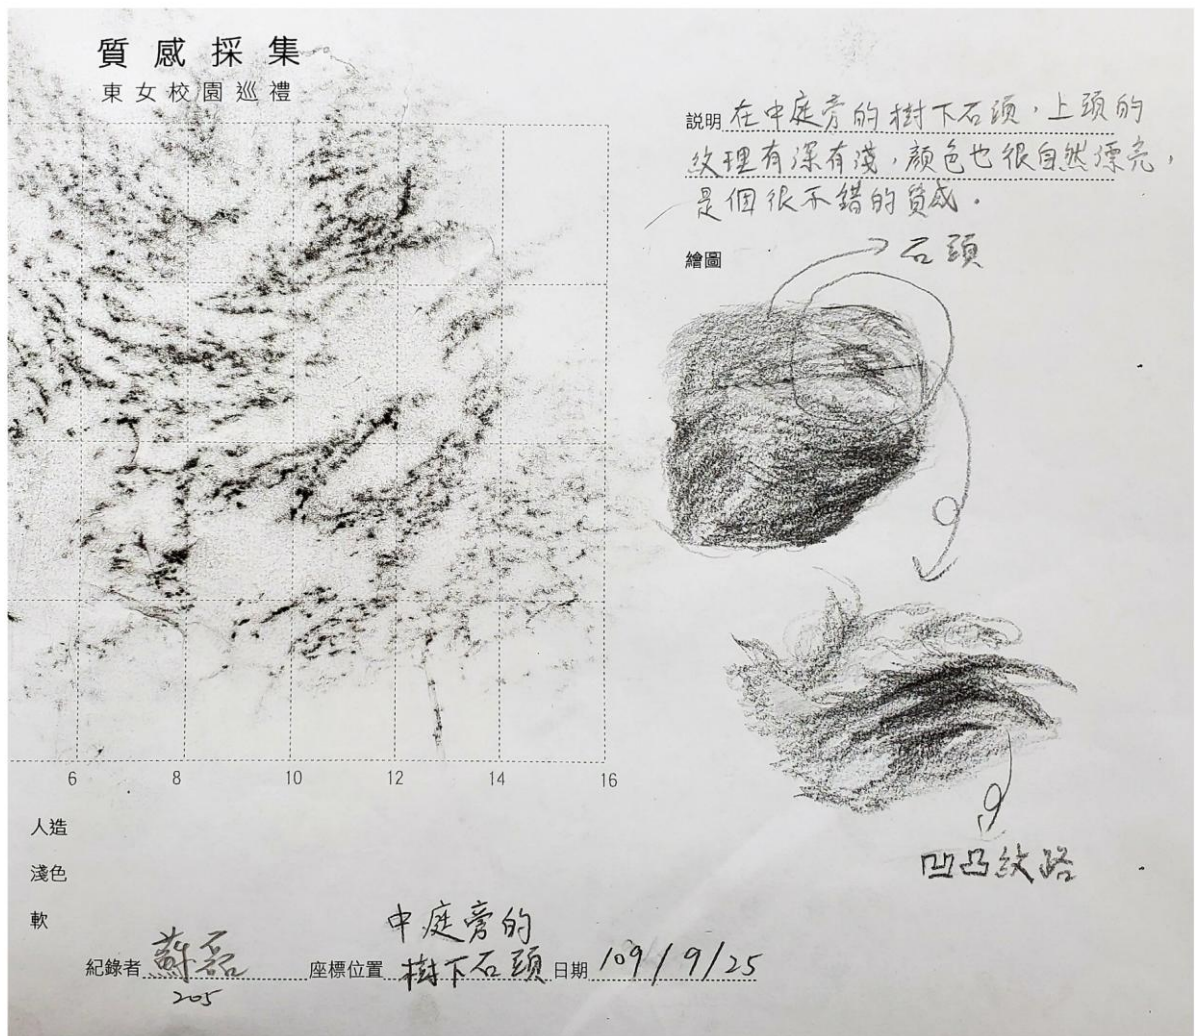 質感採集
東女校園巡禮
説明 在中庭旁的樹下石頭，上頭的
紋理有深有淺，顏色也很自然漂亮，
是個很不錯的質感。
繪圖
石頭
凹凸紋路
6 8 10 12 14 16
人造
淺色
軟
紀錄者 蘇磊 座標位置 中庭旁的
樹下石頭 日期 109/9/25
205